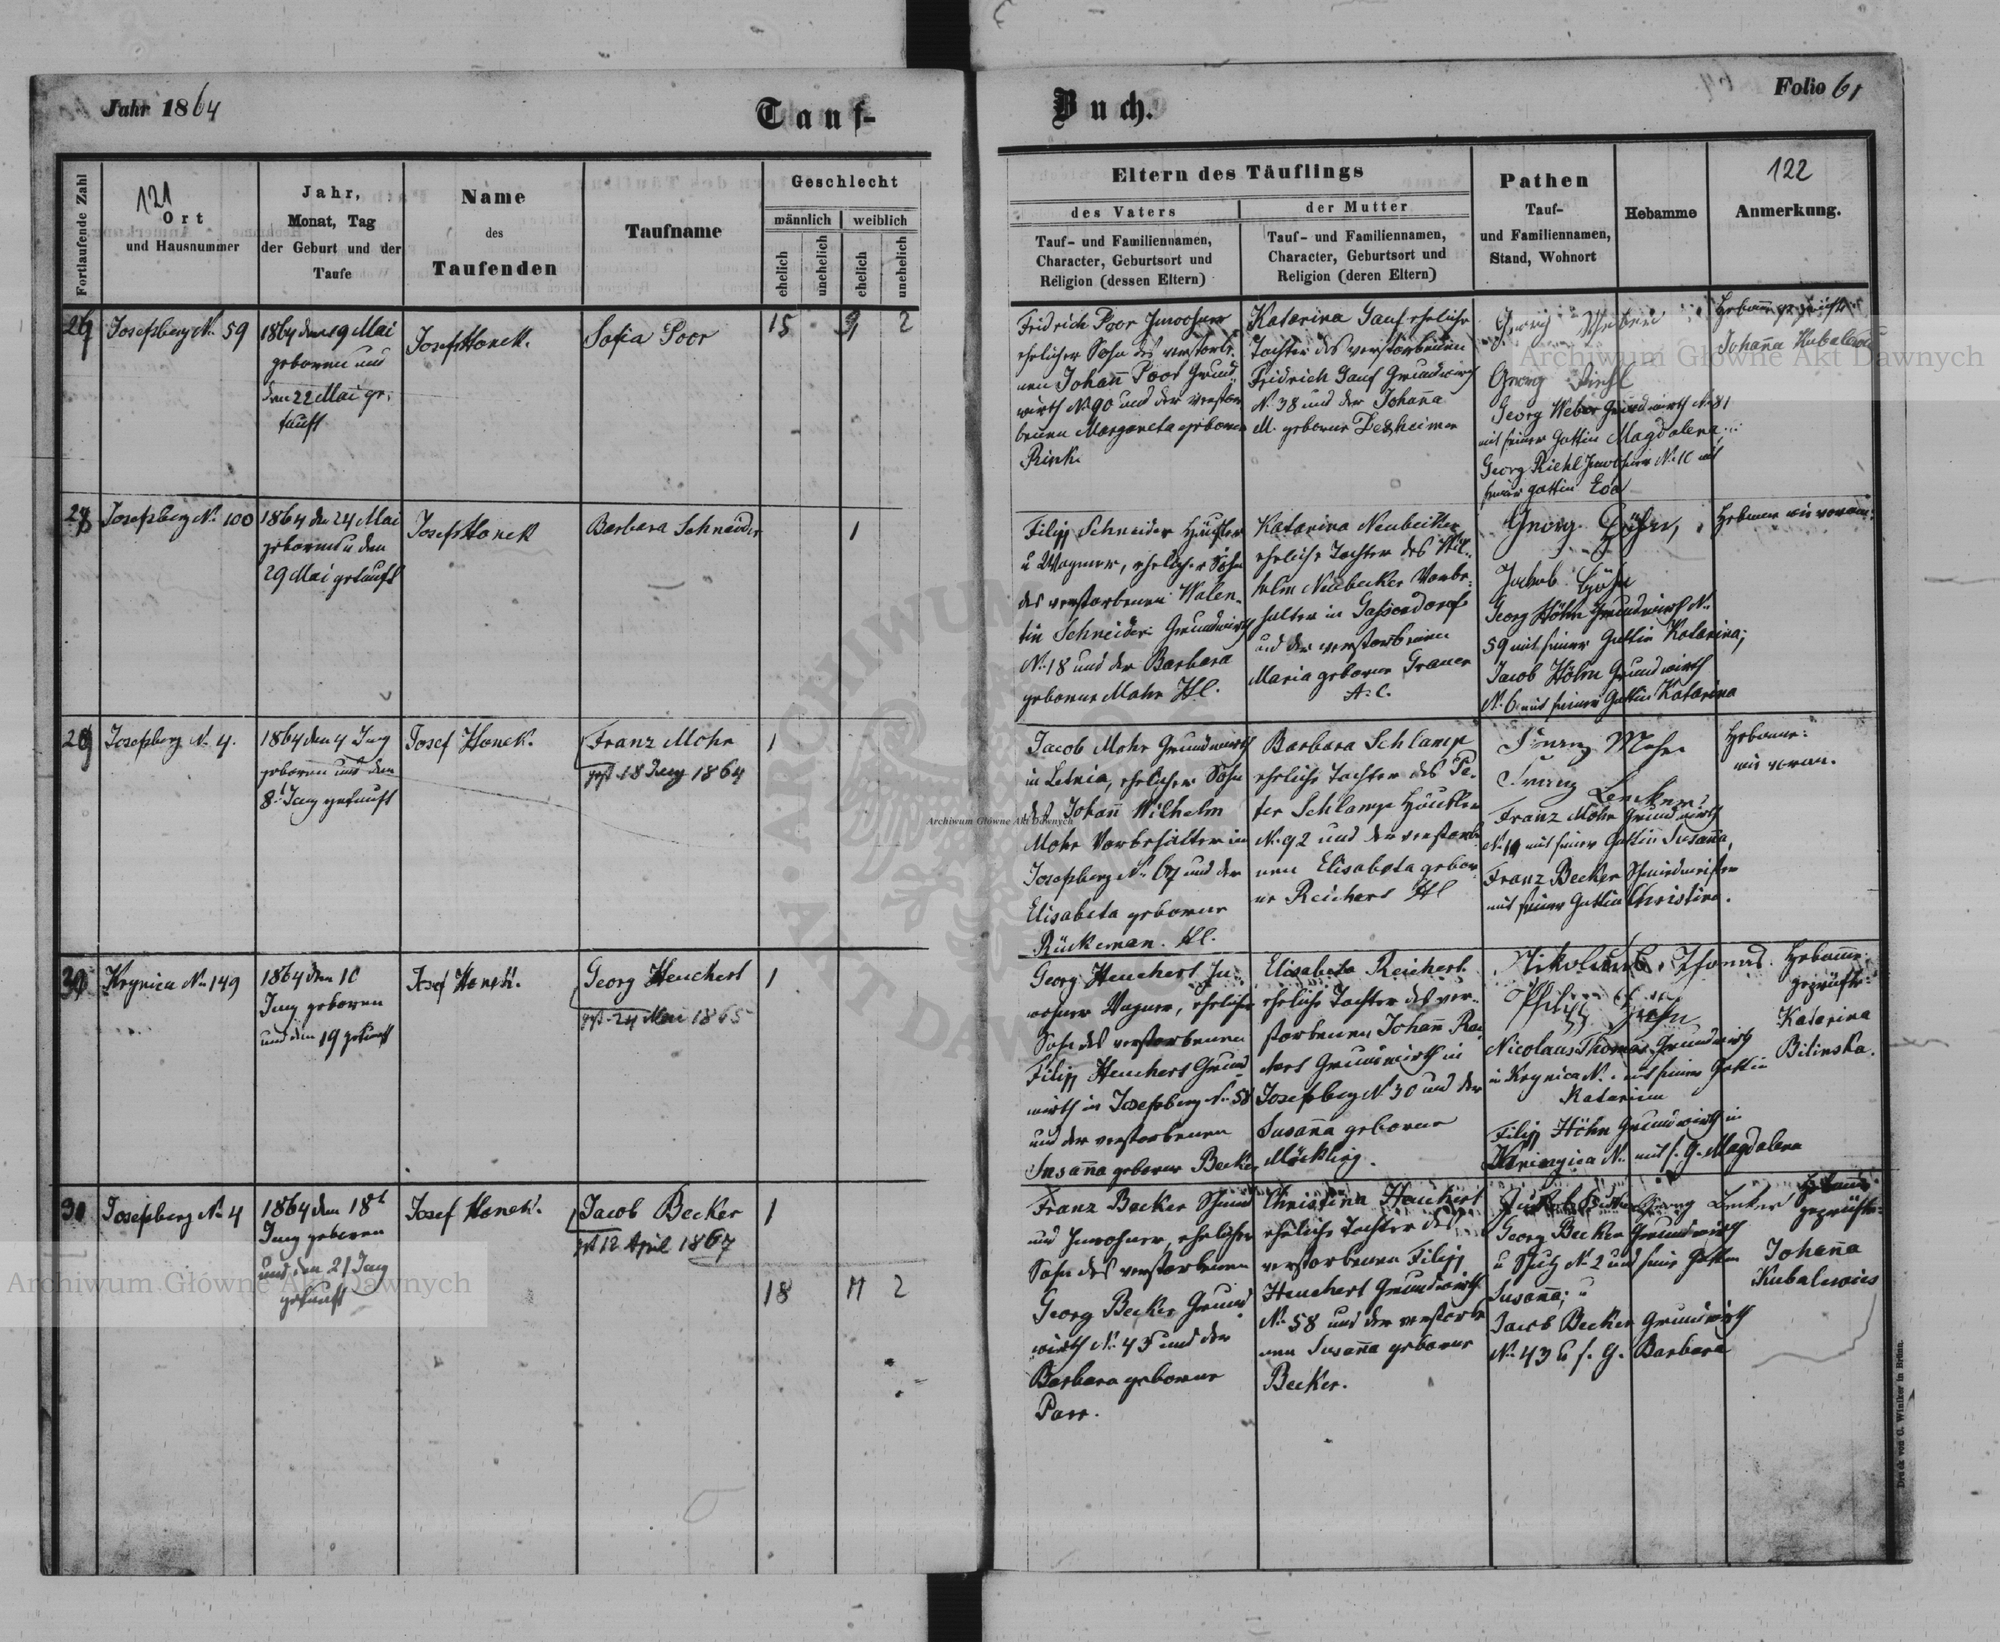 Jahr 1864
Tauf-
Buch.
Folio 61
Fortlaufende Zahl
121
Ort
und Hausnummer
Jahr,
Monat, Tag
der Geburt und der
Taufe
Name
des
Taufenden
Taufname
Geschlecht
männlich
weiblich
ehelich
unehelich
ehelich
unehelich
Eltern des Täuflings
des Vaters
der Mutter
Tauf- und Familiennamen,
Character, Geburtsort und
Religion (dessen Eltern)
Tauf- und Familiennamen,
Character, Geburtsort und
Religion (deren Eltern)
Pathen
Tauf-
und Familiennamen,
Stand, Wohnort
Hebamme
122
Anmerkung.
Josefsberg N. 59
1864 den 19 Mai
geboren und
den 22 Mai ge-
tauft
Josef Honek.
Sofia Poor
15
2
Fridrich Poor Inwohner
ehelicher Sohn des verstorbe-
nen Johann Poor Grund-
wirth N. 90 und der verstor
benen Margareta geborne
Rink
Katarina Gauf eheliche
Tochter des verstorbenen
Fridrich Gauf Grundwirth
N. 38 und der Johanna
M. geborne Desheimer
Georg Weber
Georg Riehl
Georg Weber Grundwirth N. 81
mit seiner Gattin Magdalena
Georg Riehl Inwohner N. 10 mit
seiner Gattin Eva
Hebamme geprüfte
Johanna Kubalewicz
28
Josefsberg N. 100
1864 den 24 Mai
geboren u den
29 Mai getauft
Josef Honek
Barbara Schneider
1
Filipp Schneider Häusler
u Wagner, ehelicher Sohn
des verstorbenen Valen-
tin Schneider Grundwirth
N. 18 und der Barbara
geborne Mohr Hl.
Katarina Neubecker
eheliche Tochter des Wil-
helm Neubecker Vorbe-
halter in Gassendorf
und der verstorbenen
Maria geborne Grauer
A. C.
Georg Höhn,
Jakob Höhn
Georg Höhn Grundwirth N.
59 mit seiner Gattin Katarina;
Jacob Höhn Grundwirth
N. 6 mit seiner Gattin Katarina
Hebamme wie voran:
29
Josefsberg N. 4.
1864 den 4 Juny
geboren und den
8t Juny getauft
Josef Honek.
Franz Mohr
gest 18 Juny 1864
1
Jacob Mohr Grundwirth
in Letnia, ehelicher Sohn
des Johann Wilhelm
Mohr Vorbehalter in
Josefsberg N. 67 und der
Elisabeta geborne
Rückeman. Hl.
Barbara Schlamp
eheliche Tochter des Pe-
ter Schlamp Häusler
N. 92 und der verstorbe
nen Elisabeta gebor-
ne Reichert Hl
Franz Mohr
Franz Becker
Franz Mohr Grundwirth
mit seiner Gattin Susanna,
Franz Becker Schmidmeister
mit seiner Gattin Christina.
Hebamme:
wie voran.
Krynica N. 149
1864 den 10
Juny geboren
und den 19 getauft
Josef Honek.
Georg Heuchert
gest 24 Mai 1865
1
Georg Heuchert In-
wohner Wagner, ehelicher
Sohn des verstorbenen
Filipp Heuchert Grund-
wirth in Josefsberg N. 58
und der verstorbenen
Susanna geborne Becker
Elisabeta Reichert
eheliche Tochter des ver-
storbenen Johann Rei-
chert Grundwirth in
Josefsberg N 30 und der
Susanna geborne
Möckling.
Nikolaus Thomas
Philipp Höhn
Nicolaus Thomas Grundwirth
in Krynica N. mit seiner Gattin
Katarina
Filipp Höhn Grundwirth in
Krinyica N. mit s. G. Magdalena
Hebamme:
geprüfte:
Katarina
Bilinska.
Josefsberg N. 4
1864 den 18t
Juny geboren
und den 21 Juny
getauft
Josef Honek.
Jacob Becker
gest 12 April 1867
1
18
11
2
Franz Becker Schmid
und Inwohner, ehelicher
Sohn des verstorbenen
Georg Becker Grund-
wirth N. 43 und der
Barbara geborne
Parr.
Christina Heuchert
eheliche Tochter des
verstorbenen Filipp
Heuchert Grundwirth
N. 58 und der verstorbe
nen Susanna geborne
Becker.
Georg Becker
Georg Becker Grundwirth
u Schulz N. 2 und seine Gattin
Susanna; u
Jacob Becker Grundwirth
N. 43 s. G. Barbara
Hebamme
geprüfte:
Johanna
Kubalewicz
Druck von C. Winiker in Brünn.
Archiwum Główne Akt Dawnych
Archiwum Główne Akt Dawnych
Archiwum Główne Akt Dawnych